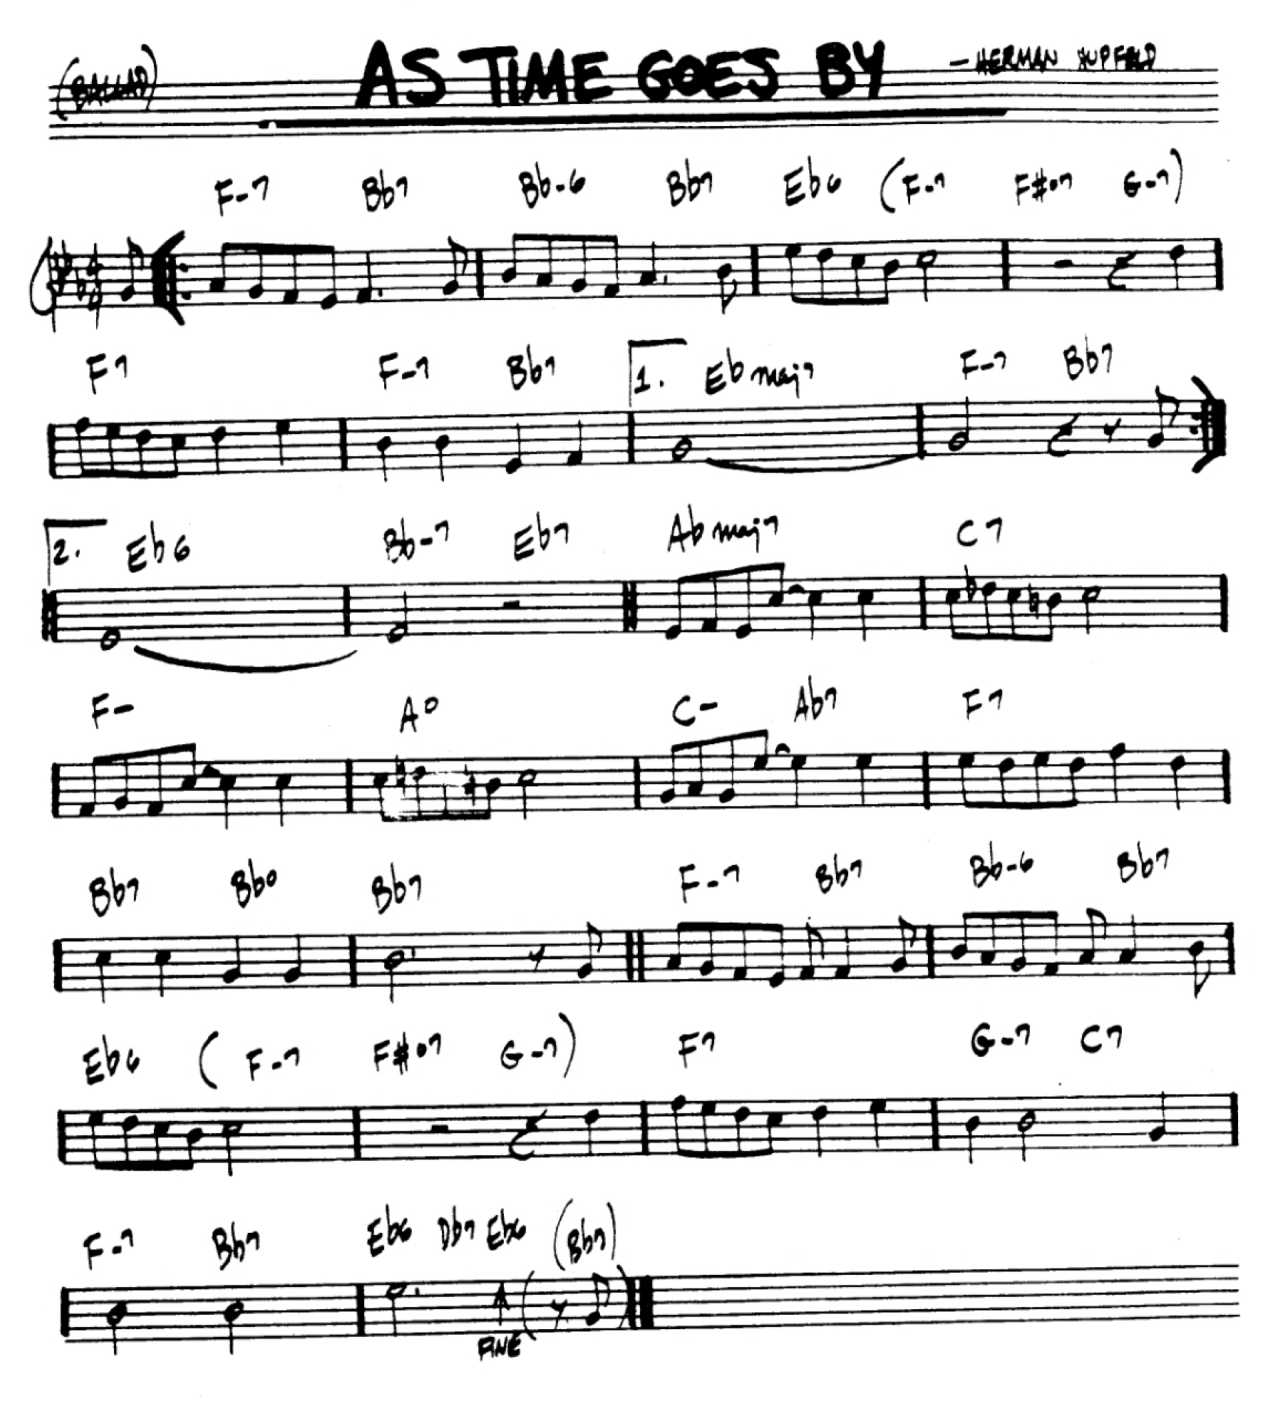 (BALLAD) AS TIME GOES BY - HERMAN HUPFELD
F-7 Bb7 Bb-6 Bb7 Eb6 (F-7 F#o7 G-7)
F7 F-7 Bb7 1. Eb maj7 F-7 Bb7
2. Eb6 Bb-7 Eb7 Ab maj7 C7
F- Ao C- Ab7 F7
Bb7 Bbo Bb7 F-7 Bb7 Bb-6 Bb7
Eb6 (F-7 F#o7 G-7) F7 G-7 C7
F-7 Bb7 Eb6 Db7 Eb6 (Bb7)
FINE